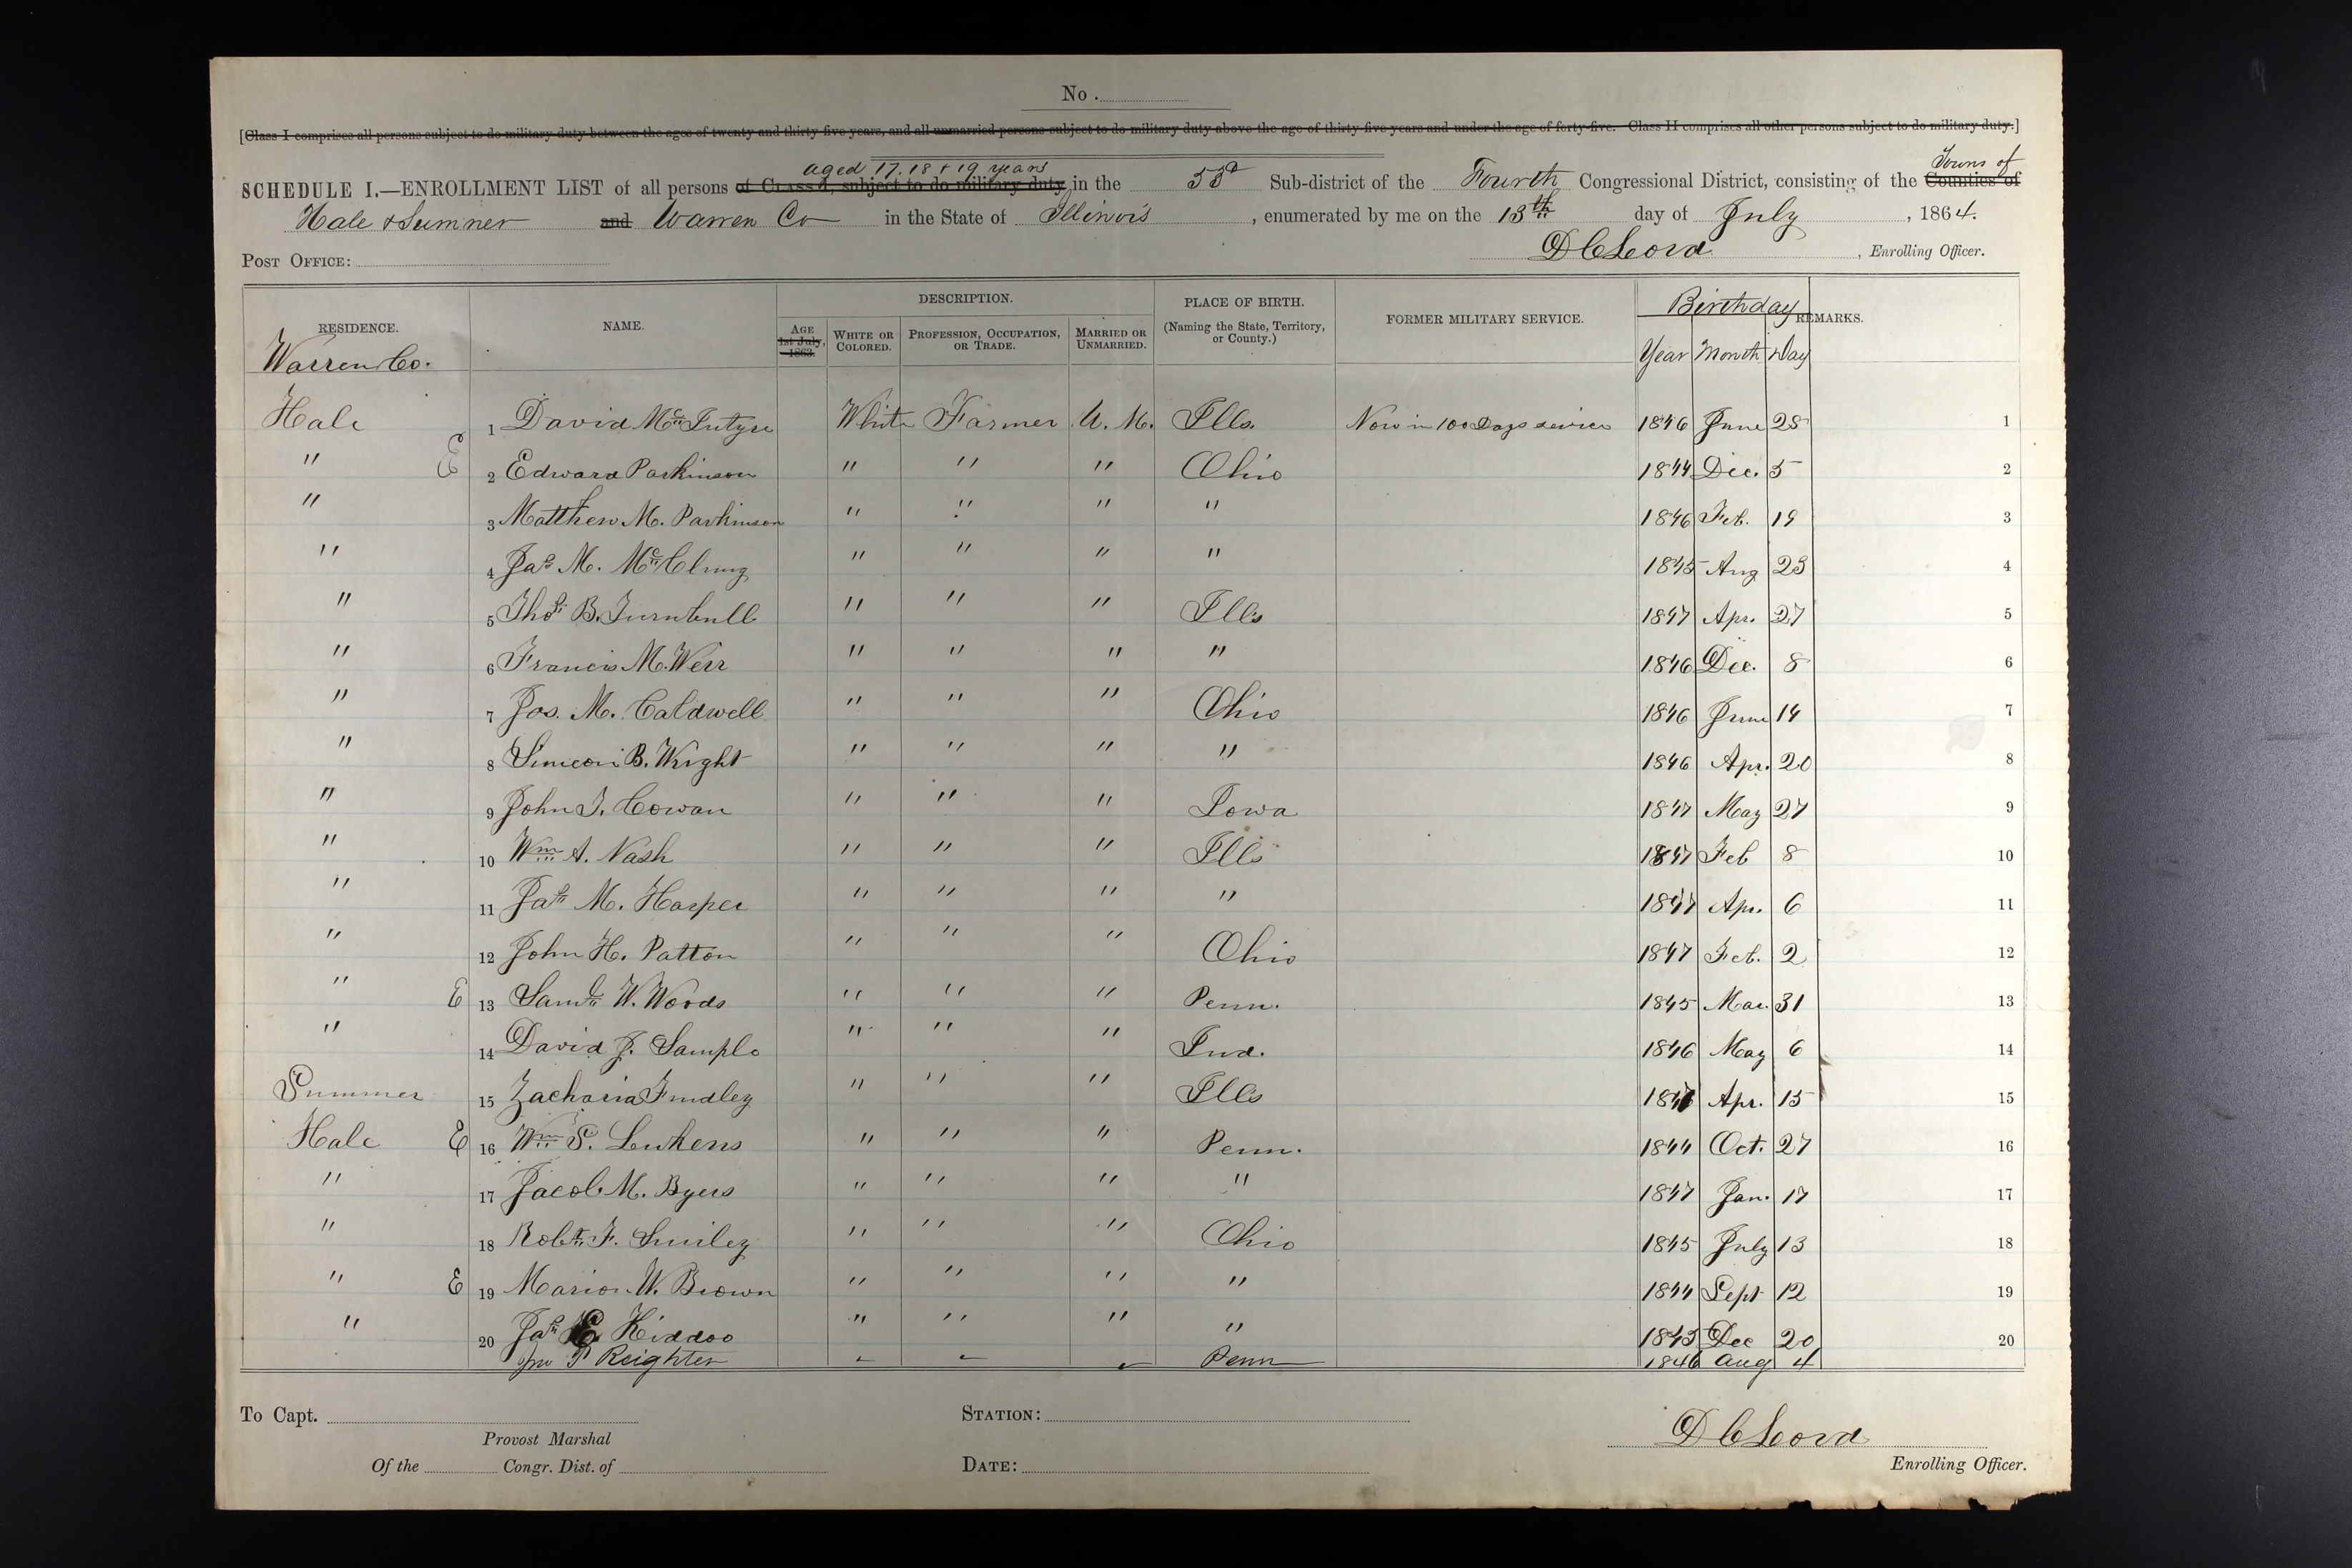 No.
[Class I comprises all persons subject to do military duty between the ages of twenty and thirty-five years, and all unmarried persons subject to do military duty above the age of thirty-five years and under the age of forty-five. Class II comprises all other persons subject to do military duty.]
aged 17, 18 & 19 years Towns of
SCHEDULE I.—ENROLLMENT LIST of all persons of Class I, subject to do military duty, in the 53d Sub-district of the Fourth Congressional District, consisting of the Counties of
Hale & Sumner and Warren Co in the State of Illinois, enumerated by me on the 13th day of July, 1864.
POST OFFICE: D C Leord, Enrolling Officer.
RESIDENCE. NAME. DESCRIPTION. PLACE OF BIRTH. (Naming the State, Territory, or County.) FORMER MILITARY SERVICE. Birthday REMARKS.
AGE 1st July, 1863. WHITE OR COLORED. PROFESSION, OCCUPATION, OR TRADE. MARRIED OR UNMARRIED. Year Month Day
Warren Co.
Hale 1 David McIntyre White Farmer U. M. Ills. Now in 100 Days service 1846 June 28 1
" E 2 Edward Parkinson " " " Ohio 1844 Dec. 5 2
" 3 Matthew M. Parkinson " " " " 1846 Feb. 19 3
" 4 Jas M. McClung " " " " 1845 Aug 23 4
" 5 Thos B. Turnbull " " " Ills 1847 Apr. 27 5
" 6 Francis M. Weir " " " " 1846 Dec. 8 6
" 7 Jos. M. Caldwell " " " Ohio 1846 June 14 7
" 8 Simeon B. Wright " " " " 1846 Apr. 20 8
" 9 John T. Cowan " " " Iowa 1847 May 27 9
" 10 Wm A. Nash " " " Ills 1847 Feb 8 10
" 11 Jas M. Harper " " " " 1847 Apr. 6 11
" 12 John H. Patton " " " Ohio 1847 Feb. 2 12
" E 13 Saml W. Woods " " " Penn. 1845 Mar. 31 13
" 14 David J. Sample " " " Ind. 1846 May 6 14
Summer 15 Zacharia Findley " " " Ills Apr. 15 15
Hale E 16 Wm S. Lukens " " " Penn. 1844 Oct. 27 16
" 17 Jacob M. Byers " " " " 1847 Jan. 17 17
" 18 Robt F. Smiley " " " Ohio 1845 July 13 18
" E 19 Marion W. Brown " " " " 1844 Sept 12 19
" 20 Jas Kiddoo " " " " 1845 Dec 20 20
Jno P Reighter " " " Penn 1846 Aug 4
To Capt. STATION: D C Leord
Provost Marshal
Of the Congr. Dist. of DATE: Enrolling Officer.